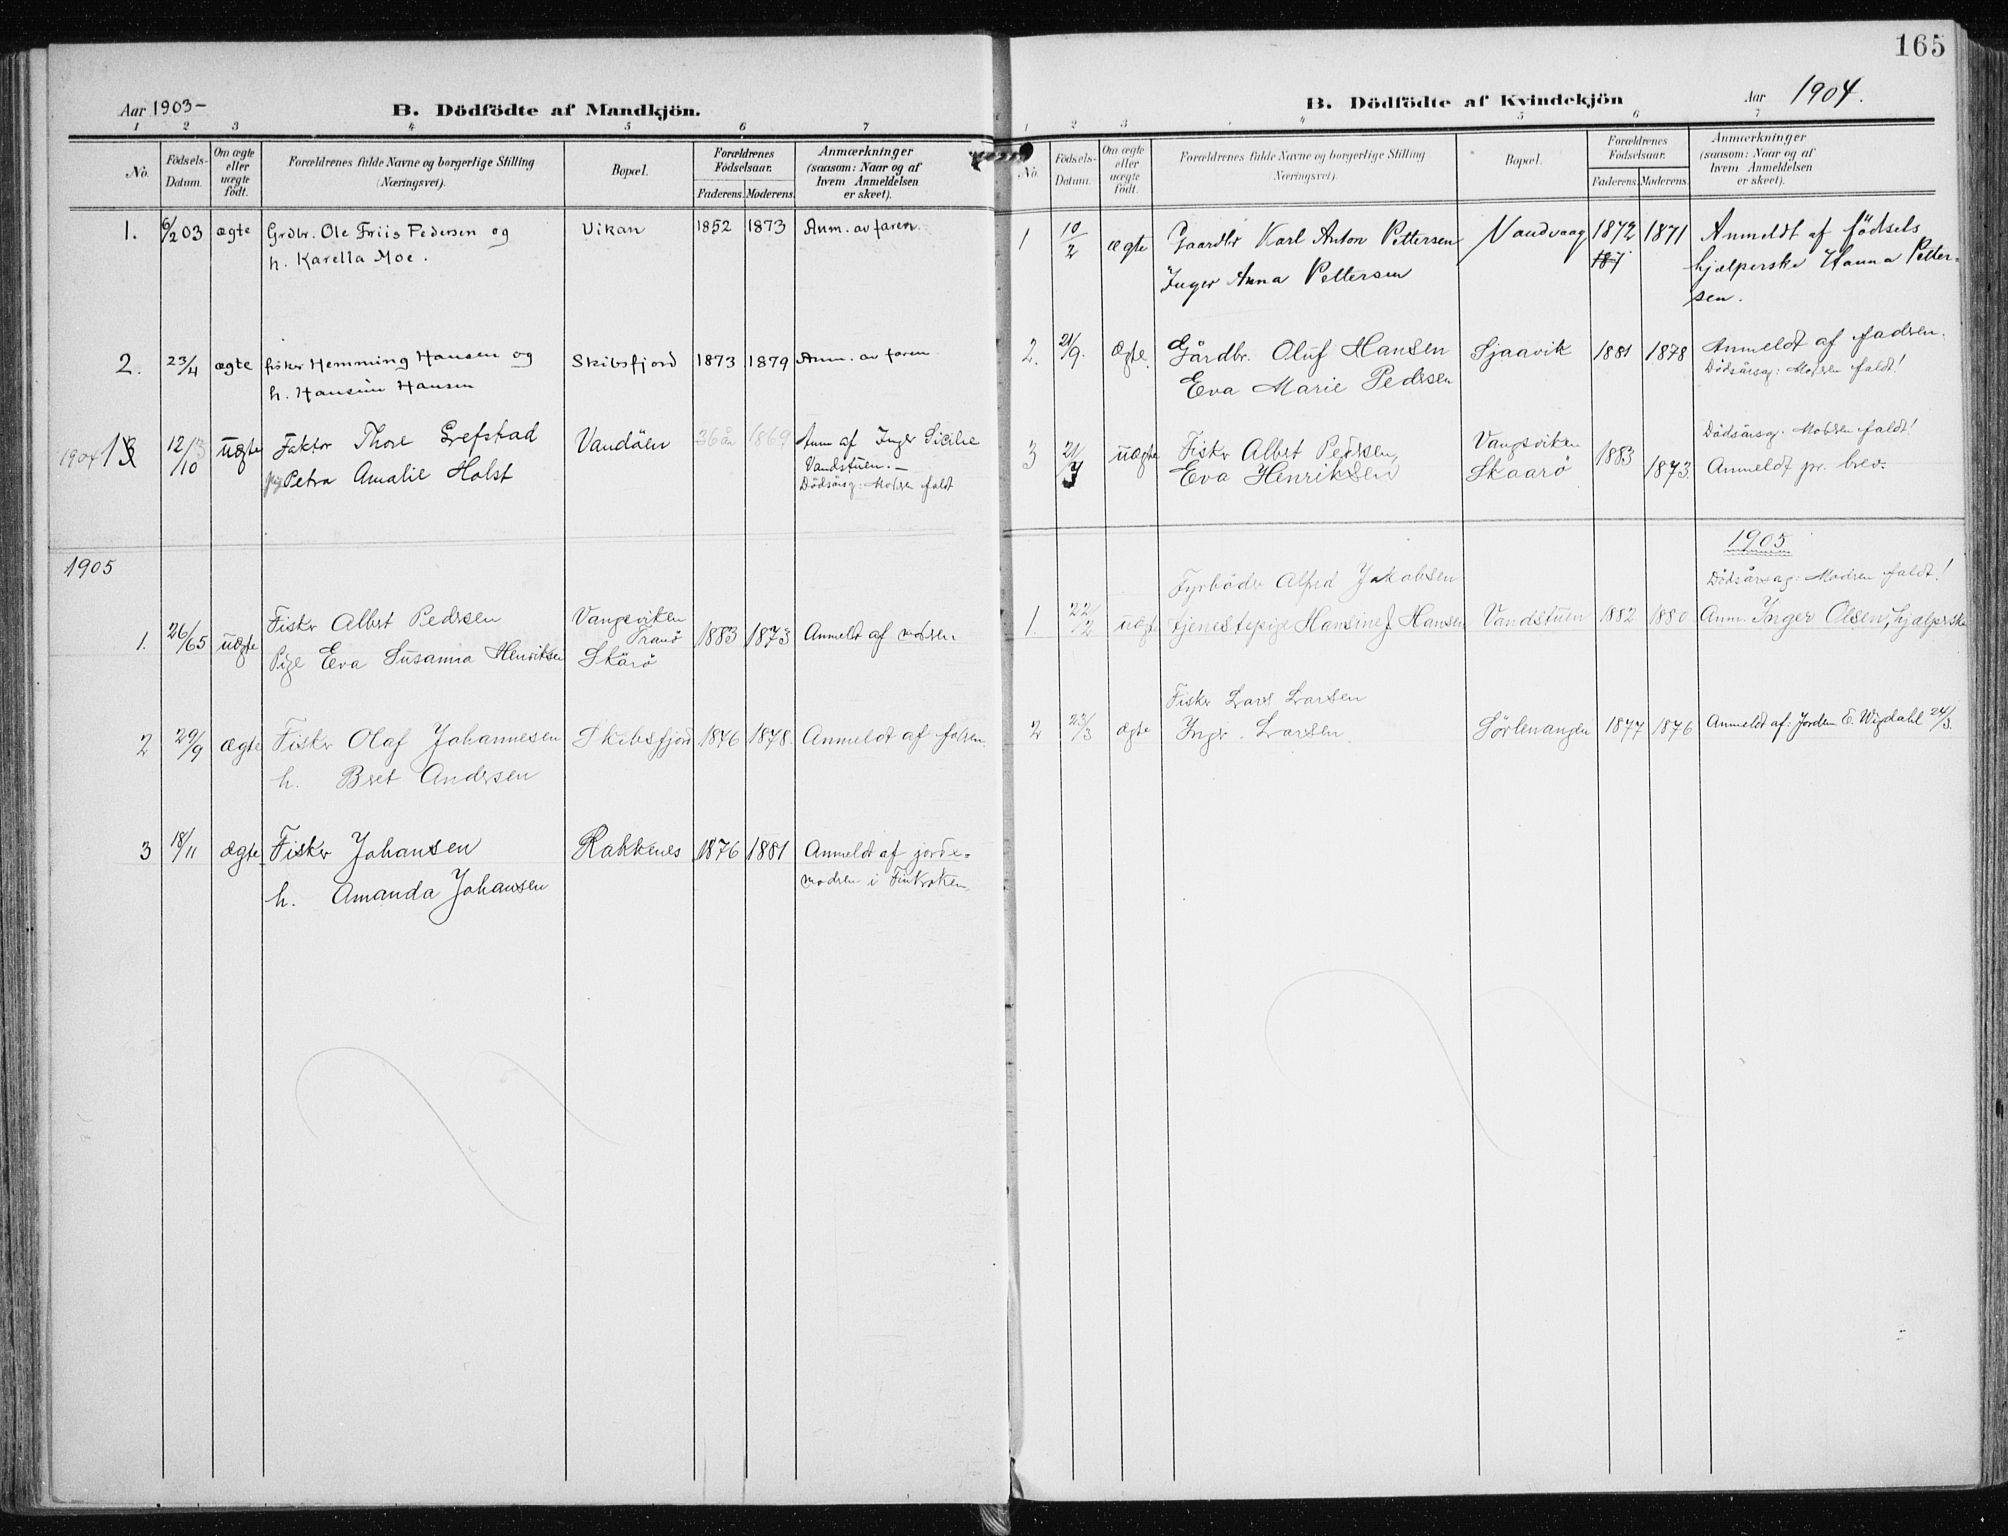 Aar 1903-
B. Dödfödte af Mandkjön.
1 2 3 4 5 6 7
No.
Födsels-
Datum.
Om ægte
eller
uægte
födt.
Forældrenes fulde Navne og borgerlige Stilling
(Næringsvei).
Bopæl.
Forældrenes
Födselsaar.
Faderens. Moderens.
Anmærkninger
(saasom: Naar og af
hvem Anmeldelsen
er skeet).
1. 6/2 03 ægte Grdbr. Ole Friis Pedersen og Vikan 1852 1873 Anm. av faren.
h. Karella Moe.
2. 23/4 ægte fisker Hemming Hansen og Skibsfjord 1873 1879 Anm. av faren
h. Hansine Hansen
1904 1 12/10 uægte Faktor Thore Grefstad Vandöen 36 år 1869 Anm af Inger Sicilie
pig Petra Amalie Holst Vandstuen.-
Dödsårsg: Modren faldt
1905
1. 26/65 uægte Fisker Albert Pedersen Vangsviken 1883 1873 Anmeldt af modren
Tranö
Pige Eva Susanna Henriksen Skårö
2 29/9 ægte Fisker Olaf Johannesen Skibsfjord 1876 1878. Anmeldt af fadren.
h. Bret Andersen
3 18/11 ægte Fisker Johansen Rakkenes 1876 1881 Anmeldt af jorde-
h. Amanda Johansen modren i Finkroken
165
B. Dödfödte af Kvindekjön
Aar 1904.
1 2 3 4 5 6 7
No.
Födsels-
Datum.
Om ægte
eller
uægte
födt.
Forældrenes fulde Navne og borgerlige Stilling
(Næringsvei).
Bopæl.
Forældrenes
Födselsaar.
Faderens. Moderens.
Anmærkninger
(saasom: Naar og af
hvem Anmeldelsen
er skeet).
1 10/2 ægte Gaardbr Karl Anton Pettersen Vandvaag 1872 1871 Anmeldt af födsels
187
Inger Anna Pettersen hjælperske Hanna Petter-
sen.
2. 21/9. Ægte Gårdbr. Oluf Hansen Sjaavik 1881 1878 Anmeldt af fadren.
Eva Marie Pedersen Dödsårsag: Modren faldt!
Dödsårsag: Modren faldt!
3 21/7 uægte Fisker Albert Pedersen, Vangsviken 1883
Eva Henriksen Skaarö 1873. Anmeldt pr. brev.
1905
Fyrböder Alfred Jakobsen Dödsårsag: Modren faldt!
1. 22/2 uægt tjenestepige Hansine J Hansen Vandstuen 1882 1880 Anm. Inger Olsen, hjælperske
Fisker Lars Larsen
2 23/3 ægte Inger. Larsen Sörlenangen 1877 1876 Anmeldt af: Jordm E. Wigdahl 24/3.